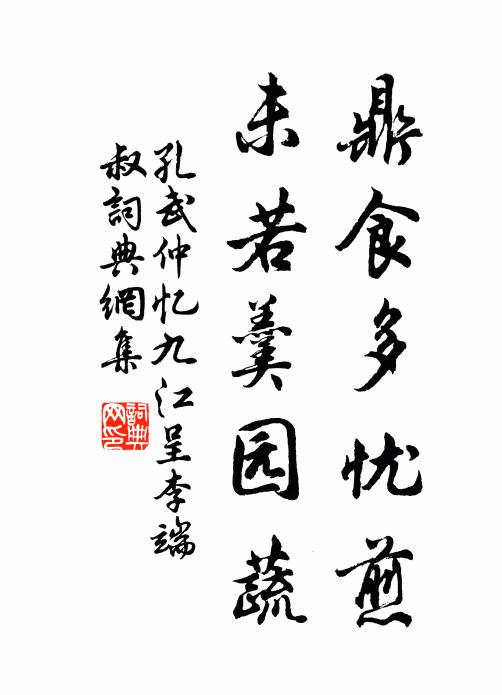 鼎食多忧煎
未若羹园蔬
孔武仲忆九江呈李端
叔詞典網集
詞典
网印